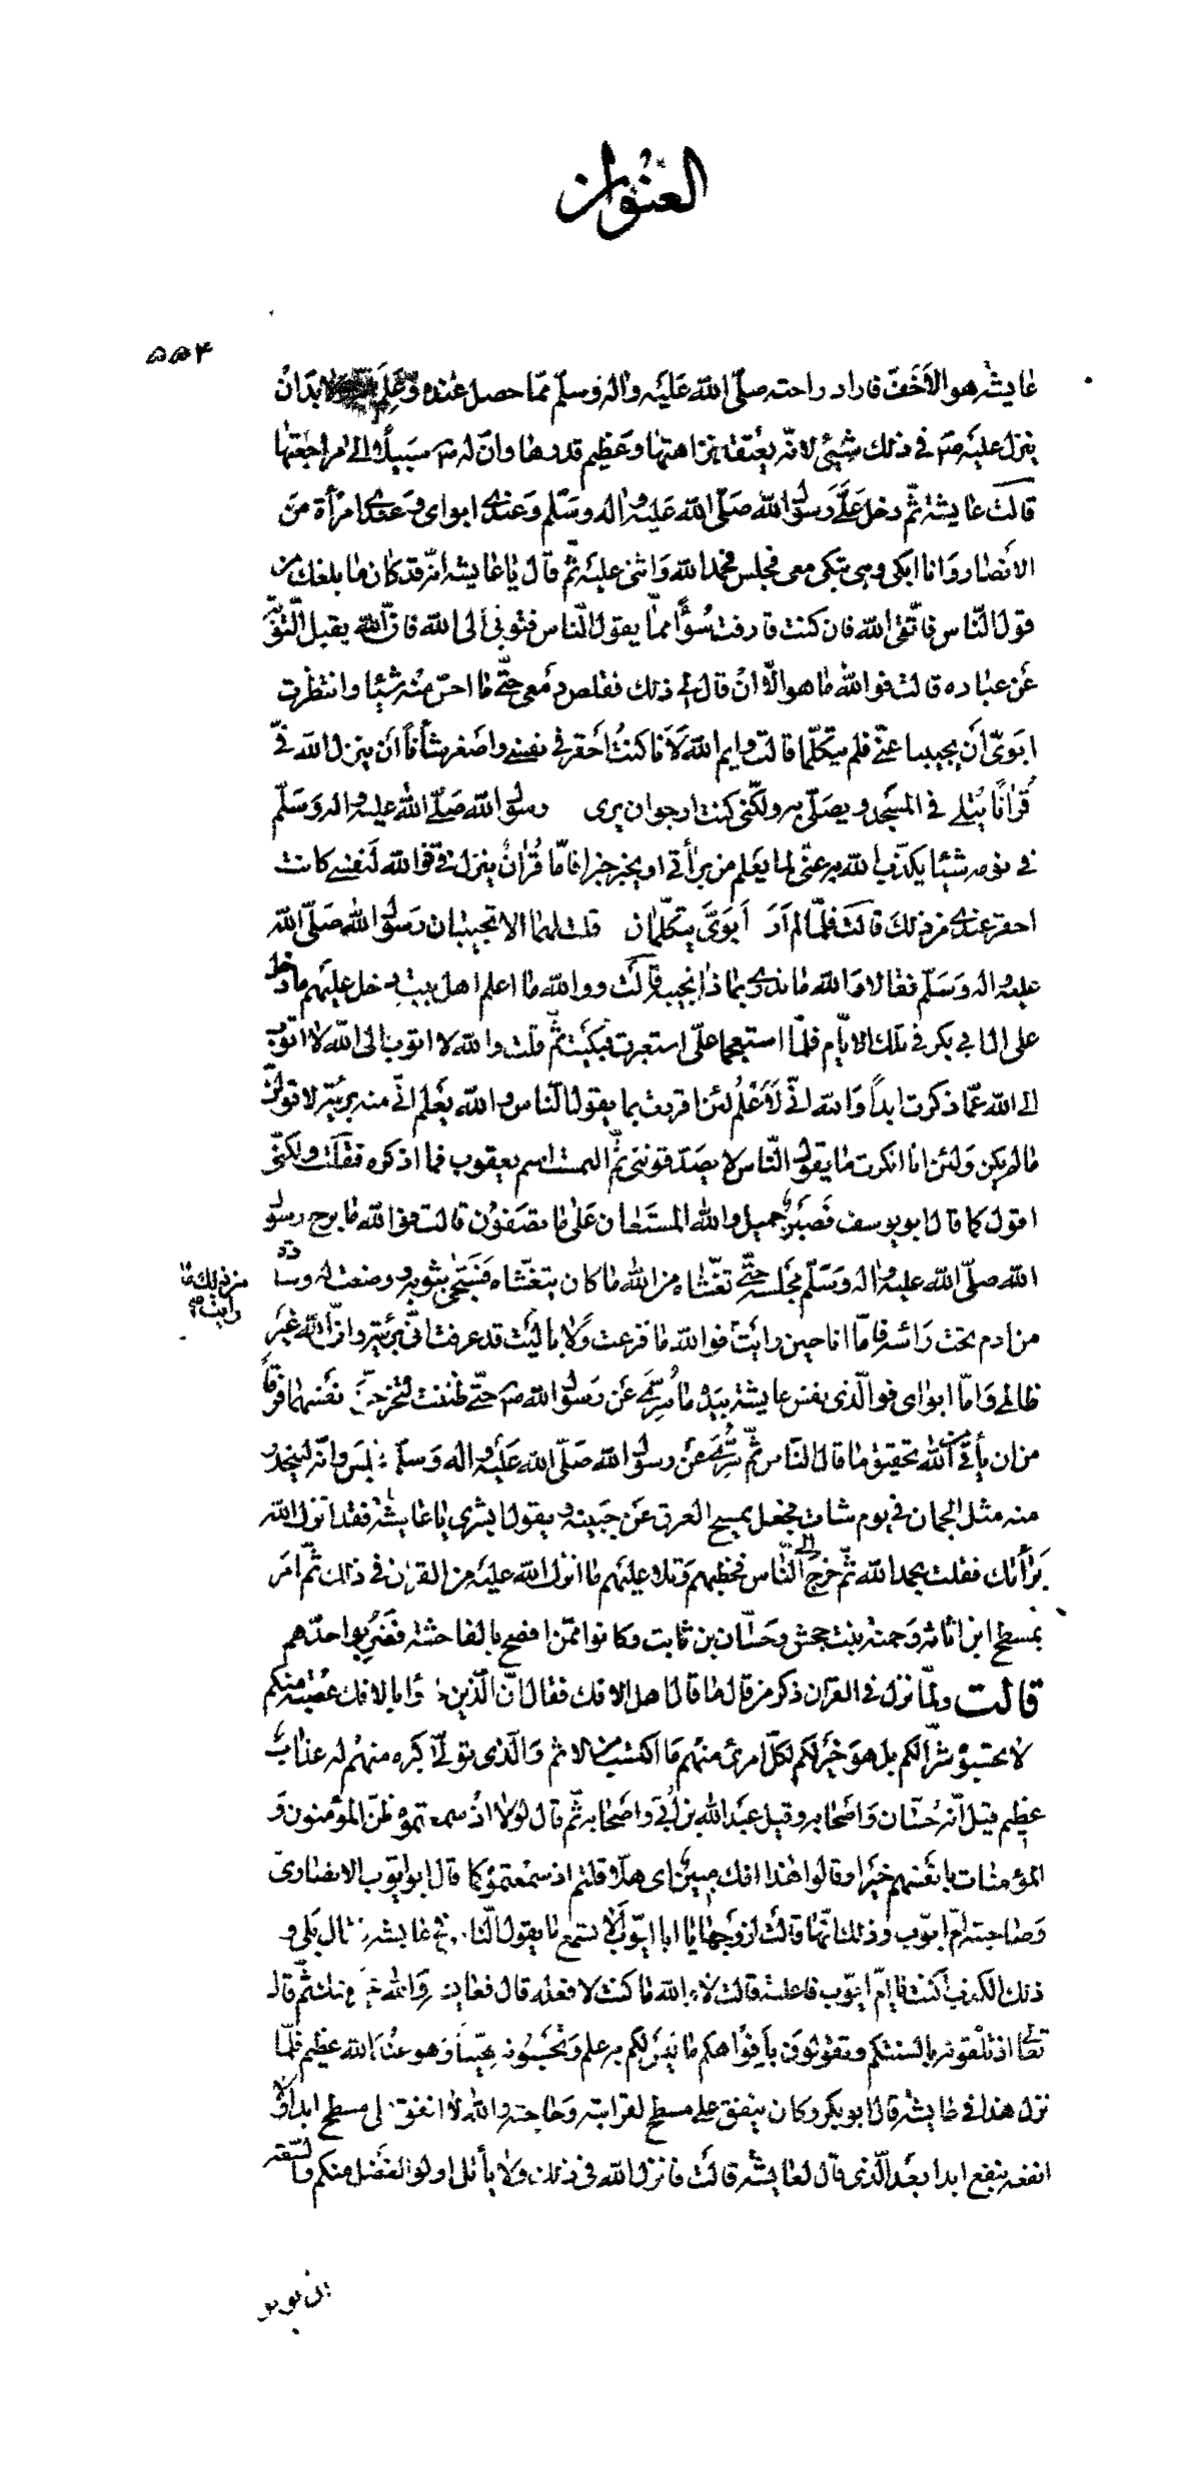 العنوان
۵۵۴
عايشه هو الاخف فاراد راحته صلّى الله عليه واله وسلّم ممّا حصل عنده وعلم لا بدّ ان
ينزل عليه ص في ذلك شيئ لانه يعتقد نزاهتها وعظيم قدرها وان له ص سبيلا الى مراجعتها
قالت عايشة ثم دخل علىّ رسول الله صلّى الله عليه واله وسلّم وعندى ابواى وعندى امرأة من
الانصار وانا ابكى وهى تبكى معى فجلس فحمد الله واثنى عليه ثم قال يا عايشه انه قد كان ما بلغك من
قول النّاس فاتّقى الله فان كنت قارفت سوًا ممّا يقول النّاس فتوبى الى الله فانّ الله يقبل التّوبة
عن عباده قالت فوالله ما هو الّا ان قال لى ذلك فقلص دمعى حتّى ما احسّ منه شيئا وانتظرت
ابوىّ ان يجيبا عنّى فلم يتكلّما قالت وايم الله لانا كنت احقر فى نفسى واصغر شأنًا ان ينزل الله فىّ
قرانًا يتلى فى المسجد ويصلّى به ولكنّى كنت ارجو ان يرى رسول الله صلّى الله عليه واله وسلّم
فى نومه شيئا يكذّب الله به عنّى لما يعلم من برأتى او يخبر خبرا فامّا قران ينزل فىّ فوالله لنفسى كانت
احقر عندى من ذلك قالت فلمّا لم ار ابوىّ يتكلّمان قلت لهما الا تجيبان رسول الله صلّى الله
عليه واله وسلّم فقالا والله ما ندرى بما ذا نجيبه قالت ووالله ما اعلم اهل بيت دخل عليهم ما دخل
على ال ابى بكر فى تلك الايّام فلمّا استعجما علىّ استعبرت فبكيت ثم قلت والله لا اتوب الى الله لا اتوب
الى الله عمّا ذكرت ابدًا والله انّى لأعلم لئن اقررت بما يقول النّاس والله يعلم انّى منه بريئة لاقولنّ
ما لم يكن ولئن انا انكرت ما يقول النّاس لا يصدّقوننى ثم التمست اسم يعقوب فما اذكره فقلت ولكنّى
اقول كما قال ابو يوسف فصبر جميل والله المستعان على ما تصفون قالت فوالله ما برح رسول
الله صلّى الله عليه واله وسلّم مجلسه حتّى تغشّاه من الله ما كان يتغشّاه فسجّى بثوبه ووضعت له وسادة
من ادم تحت رأسه فامّا انا حين رايت فوالله ما فزعت ولا باليت قد عرفت انّى بريئة وانّ الله غير
من ذلك ما رايت ص
ظالمى وامّا ابواى فوالّذى نفس عايشة بيده ما سرّى عن رسول الله ص حتّى ظننت لتخرجنّ نفسهما فرقًا
من ان يأتى من الله تحقيق ما قال النّاس ثمّ سرّى عن رسول الله صلّى الله عليه واله وسلّم فجلس وانّه لينحدر
منه مثل الجمان فى يوم شات فجعل يمسح العرق عن جبينه ويقول ابشرى يا عايشة فقد انزل الله
برأتك فقلت بحمد الله ثم خرج الى النّاس فخطبهم وتلا عليهم ما انزل الله عليه من القران فى ذلك ثم امر
بمسطح ابن اثاثة وحمنة بنت جحش وحسّان بن ثابت وكانوا ممّن افصح بالفاحشة فضربوا حدّهم
قالت ولمّا نزل فى القران ذكر من قال ما قال اهل الافك فقال انّ الّذين جاؤا بالافك عصبة منكم
لا تحسبوه شرّا لكم بل هو خير لكم لكلّ امرئ منهم ما اكتسب من الاثم والّذى تولّى كبره منهم له عذاب
عظيم قيل انّه حسّان واصحابه وقيل عبد الله بن ابىّ واصحابه ثم قال لولا اذ سمعتموه ظنّ المؤمنون و
المؤمنات بانفسهم خيرا وقالوا هذا افك مبين اى هلّا قلتم اذ سمعتموه كما قال ابو ايّوب الانصارىّ
وصاحبته امّ ايّوب وذلك انّها قالت لزوجها يا ابا ايّوب الا تسمع ما يقول النّاس فى عايشة قال بلى و
ذلك الكذب أكنت يا امّ ايّوب فاعلته قالت لا والله ما كنت لافعله قال فعايشة والله خير منك ثم قال
تعالى اذ تلقونه بالسنتكم وتقولون بأفواهكم ما ليس لكم به علم وتحسبونه هيّنًا وهو عند الله عظيم فلمّا
نزل هذا فى عايشة قال ابو بكر وكان ينفق على مسطح لقرابته وحاجته والله لا انفق على مسطح ابدا ولا
انفعه بنفع ابدا بعد الّذى قال لعايشة قالت فانزل الله فى ذلك ولا يأتل اولو الفضل منكم والسّعة
ان يؤتوا